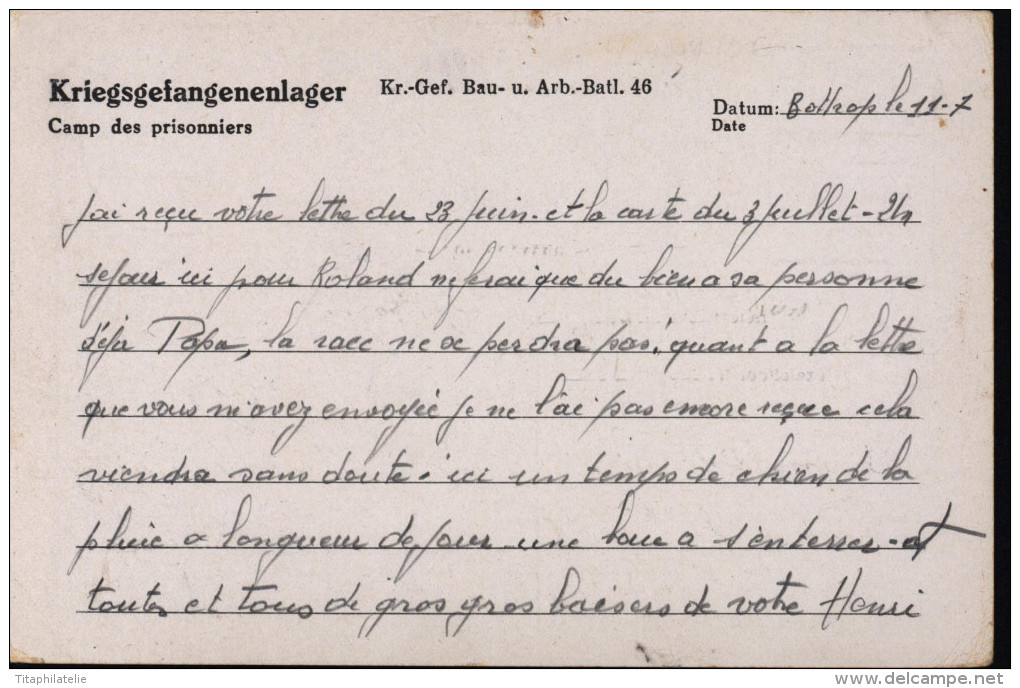 Kriegsgefangenenlager Kr.-Gef. Bau- u. Arb.-Batl. 46
Camp des prisonniers
Datum: Bottrop le 11-7
Date
J'ai reçu votre lettre du 23 Juin et la carte du 3 Juillet - Un
séjour ici pour Roland ne ferai que du bien a sa personne
déjà Papa, la race ne se perdra pas, quant a la lettre
que vous m'avez envoyée je ne l'ai pas encore reçue cela
viendra sans doute. ici un temps de chien de la
pluie a longueur de jour une boue a s'enterrer - a
toutes et tous de gros gros baisers de votre Henri
Titaphilatelie
delcampe.net